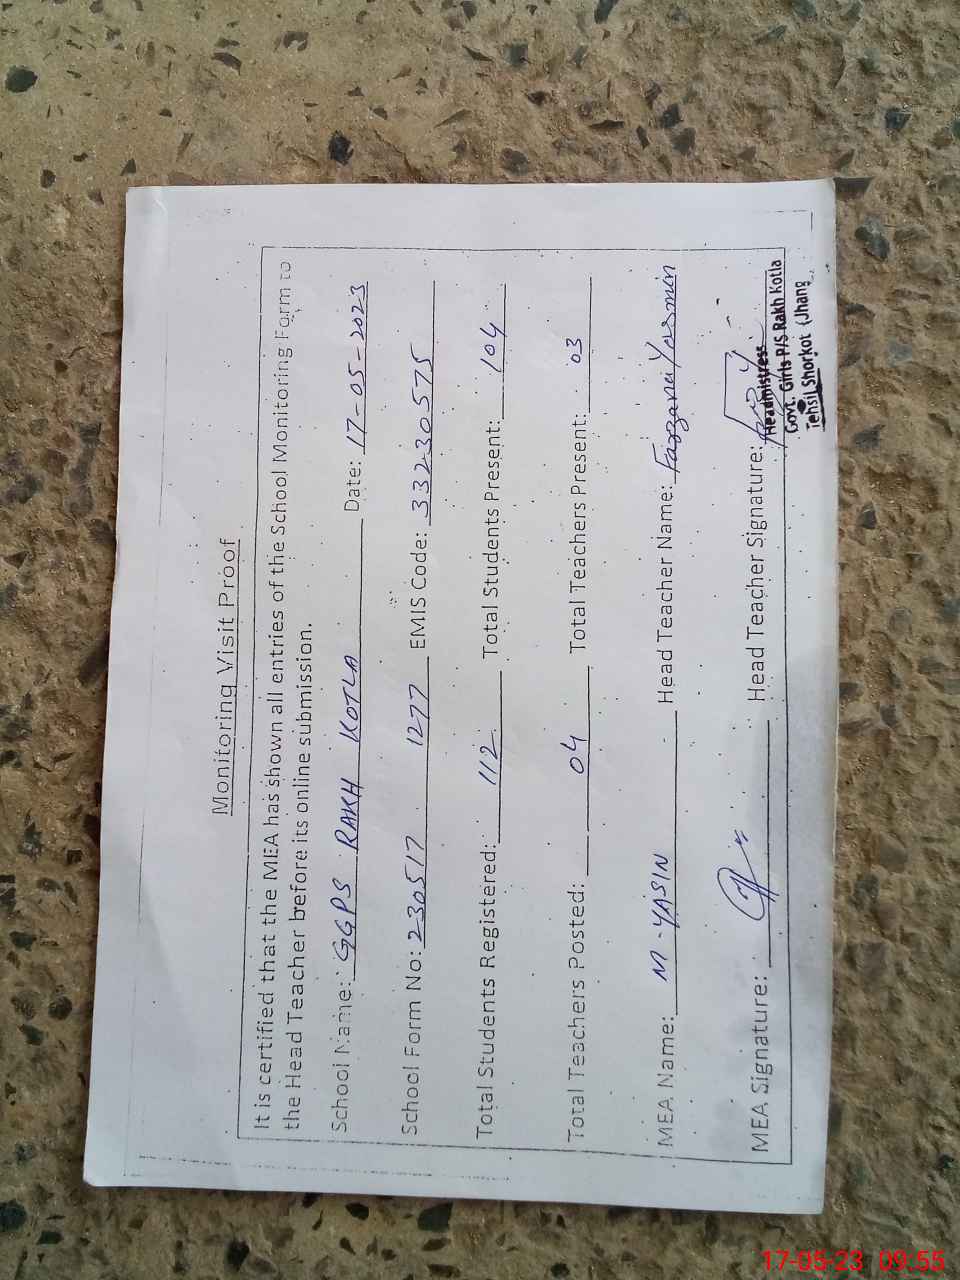 Monitoring Visit Proof
It is certified that the MEA has shown all entries of the School Monitoring Form to
the Head Teacher before its online submission.
School Name: GGPS RAKH KOTLA Date: 17-05-2023
School Form No: 230517 1277 EMIS Code: 33230575
Total Students Registered: 112 Total Students Present: 104
Total Teachers Posted: 04 Total Teachers Present: 03
MEA Name: M-YASIN Head Teacher Name: Farzana Yasmin
MEA Signature: Head Teacher Signature:
Headmistress
Govt. Girls P/S Rakh Kotla
Tehsil Shorkot (Jhang
17-05-23 09:55